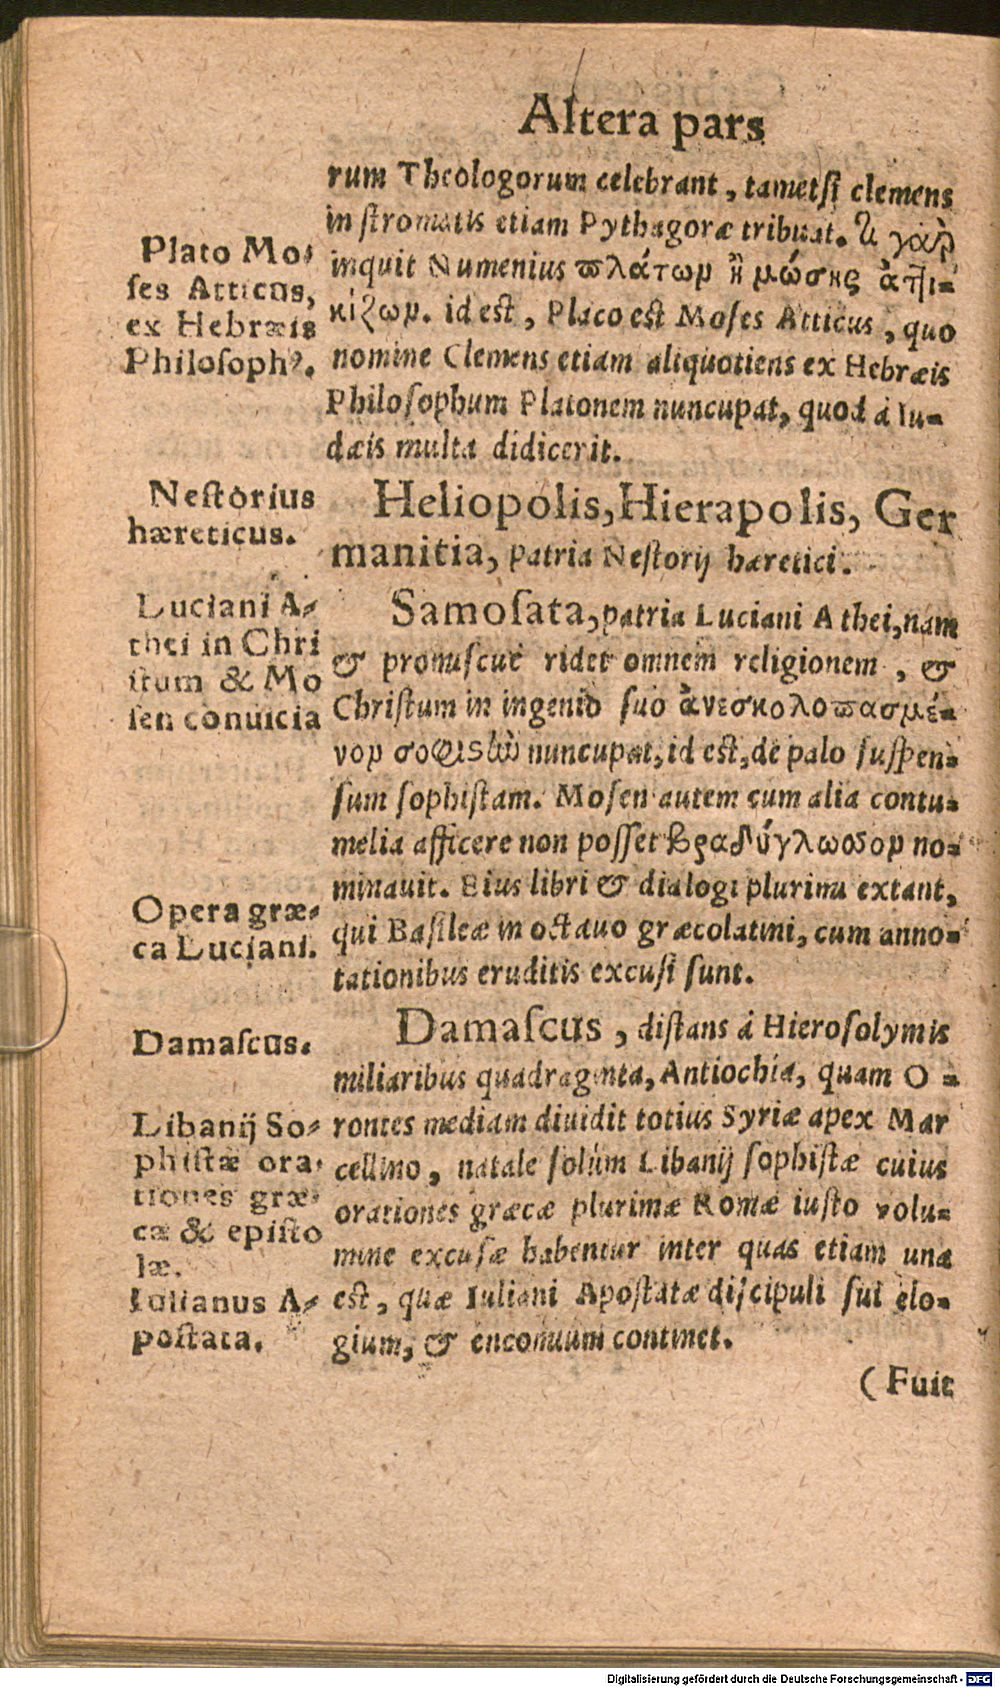 Altera pars
rum Theologorum celebrant, tametſi clemens
in ſtromatis etiam Pythagoræ tribuat. τί γαρ
inquit Numenius ϖλάτωρ ἢ μώσης ἀτ]ι-
κίζωρ. id eſt, Placo eſt Moſes Atticus, quo
nomine Clemens etiam aliquotiens ex Hebræis
Philoſophum Platonem nuncupat, quod á Iu-
dæis multa didicerit.
Plato Mo-
ſes Atticus,
ex Hebræis
Philoſophꝰ.
Heliopolis, Hierapolis, Ger
manitia, patria Neſtorij hæretici.
Neſtorius
hæreticus.
Samoſata, patria Luciani Athei, nam
& promiſcuè ridet omnem religionem, &
Chriſtum in ingenio ſuo ἀνεσκολοϖασμέ-
νορ σοφιςὼ nuncupat, id eſt, de palo ſuſpen-
ſum ſophiſtam. Moſen autem cum alia contu-
melia afficere non poſſet βραδύγλωσσορ no-
minauit. Eius libri & dialogi plurimi extant,
qui Baſileæ in octauo græcolatini, cum anno-
tationibus eruditis excuſi ſunt.
Luciani A-
thei in Chri
ſtum & Mo
ſen conuicia
Opera græ-
ca Luciani.
Damaſcus, diſtans á Hieroſolymis
miliaribus quadraginta, Antiochia, quam O-
rontes mediam diuidit totius Syriæ apex Mar
cellino, natale ſolùm Libanij ſophiſtæ cuius
orationes græcæ plurimæ Romæ iuſto volu-
mine excuſæ habentur inter quas etiam una
eſt, quæ Iuliani Apoſtatæ diſcipuli ſui elo-
gium, & encomium continet.
Damaſcus.
Libanij So-
phiſtæ ora-
tiones græ-
cæ & epiſto
læ.
Iulianus A-
poſtata.
(Fuit
Digitalisierung gefördert durch die Deutsche Forschungsgemeinschaft - DFG